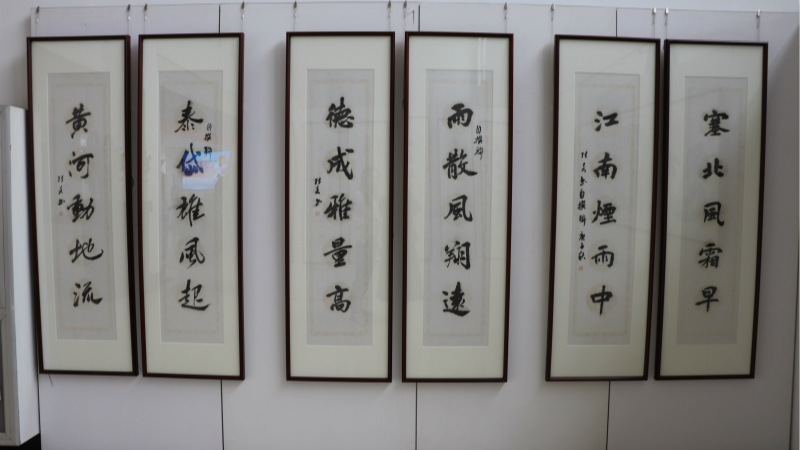 塞北風霜早
江南煙雨中
雨散風翔遠
自撰聯
德成雅量高
泰岱雄風起
自撰聯
黄河動地流